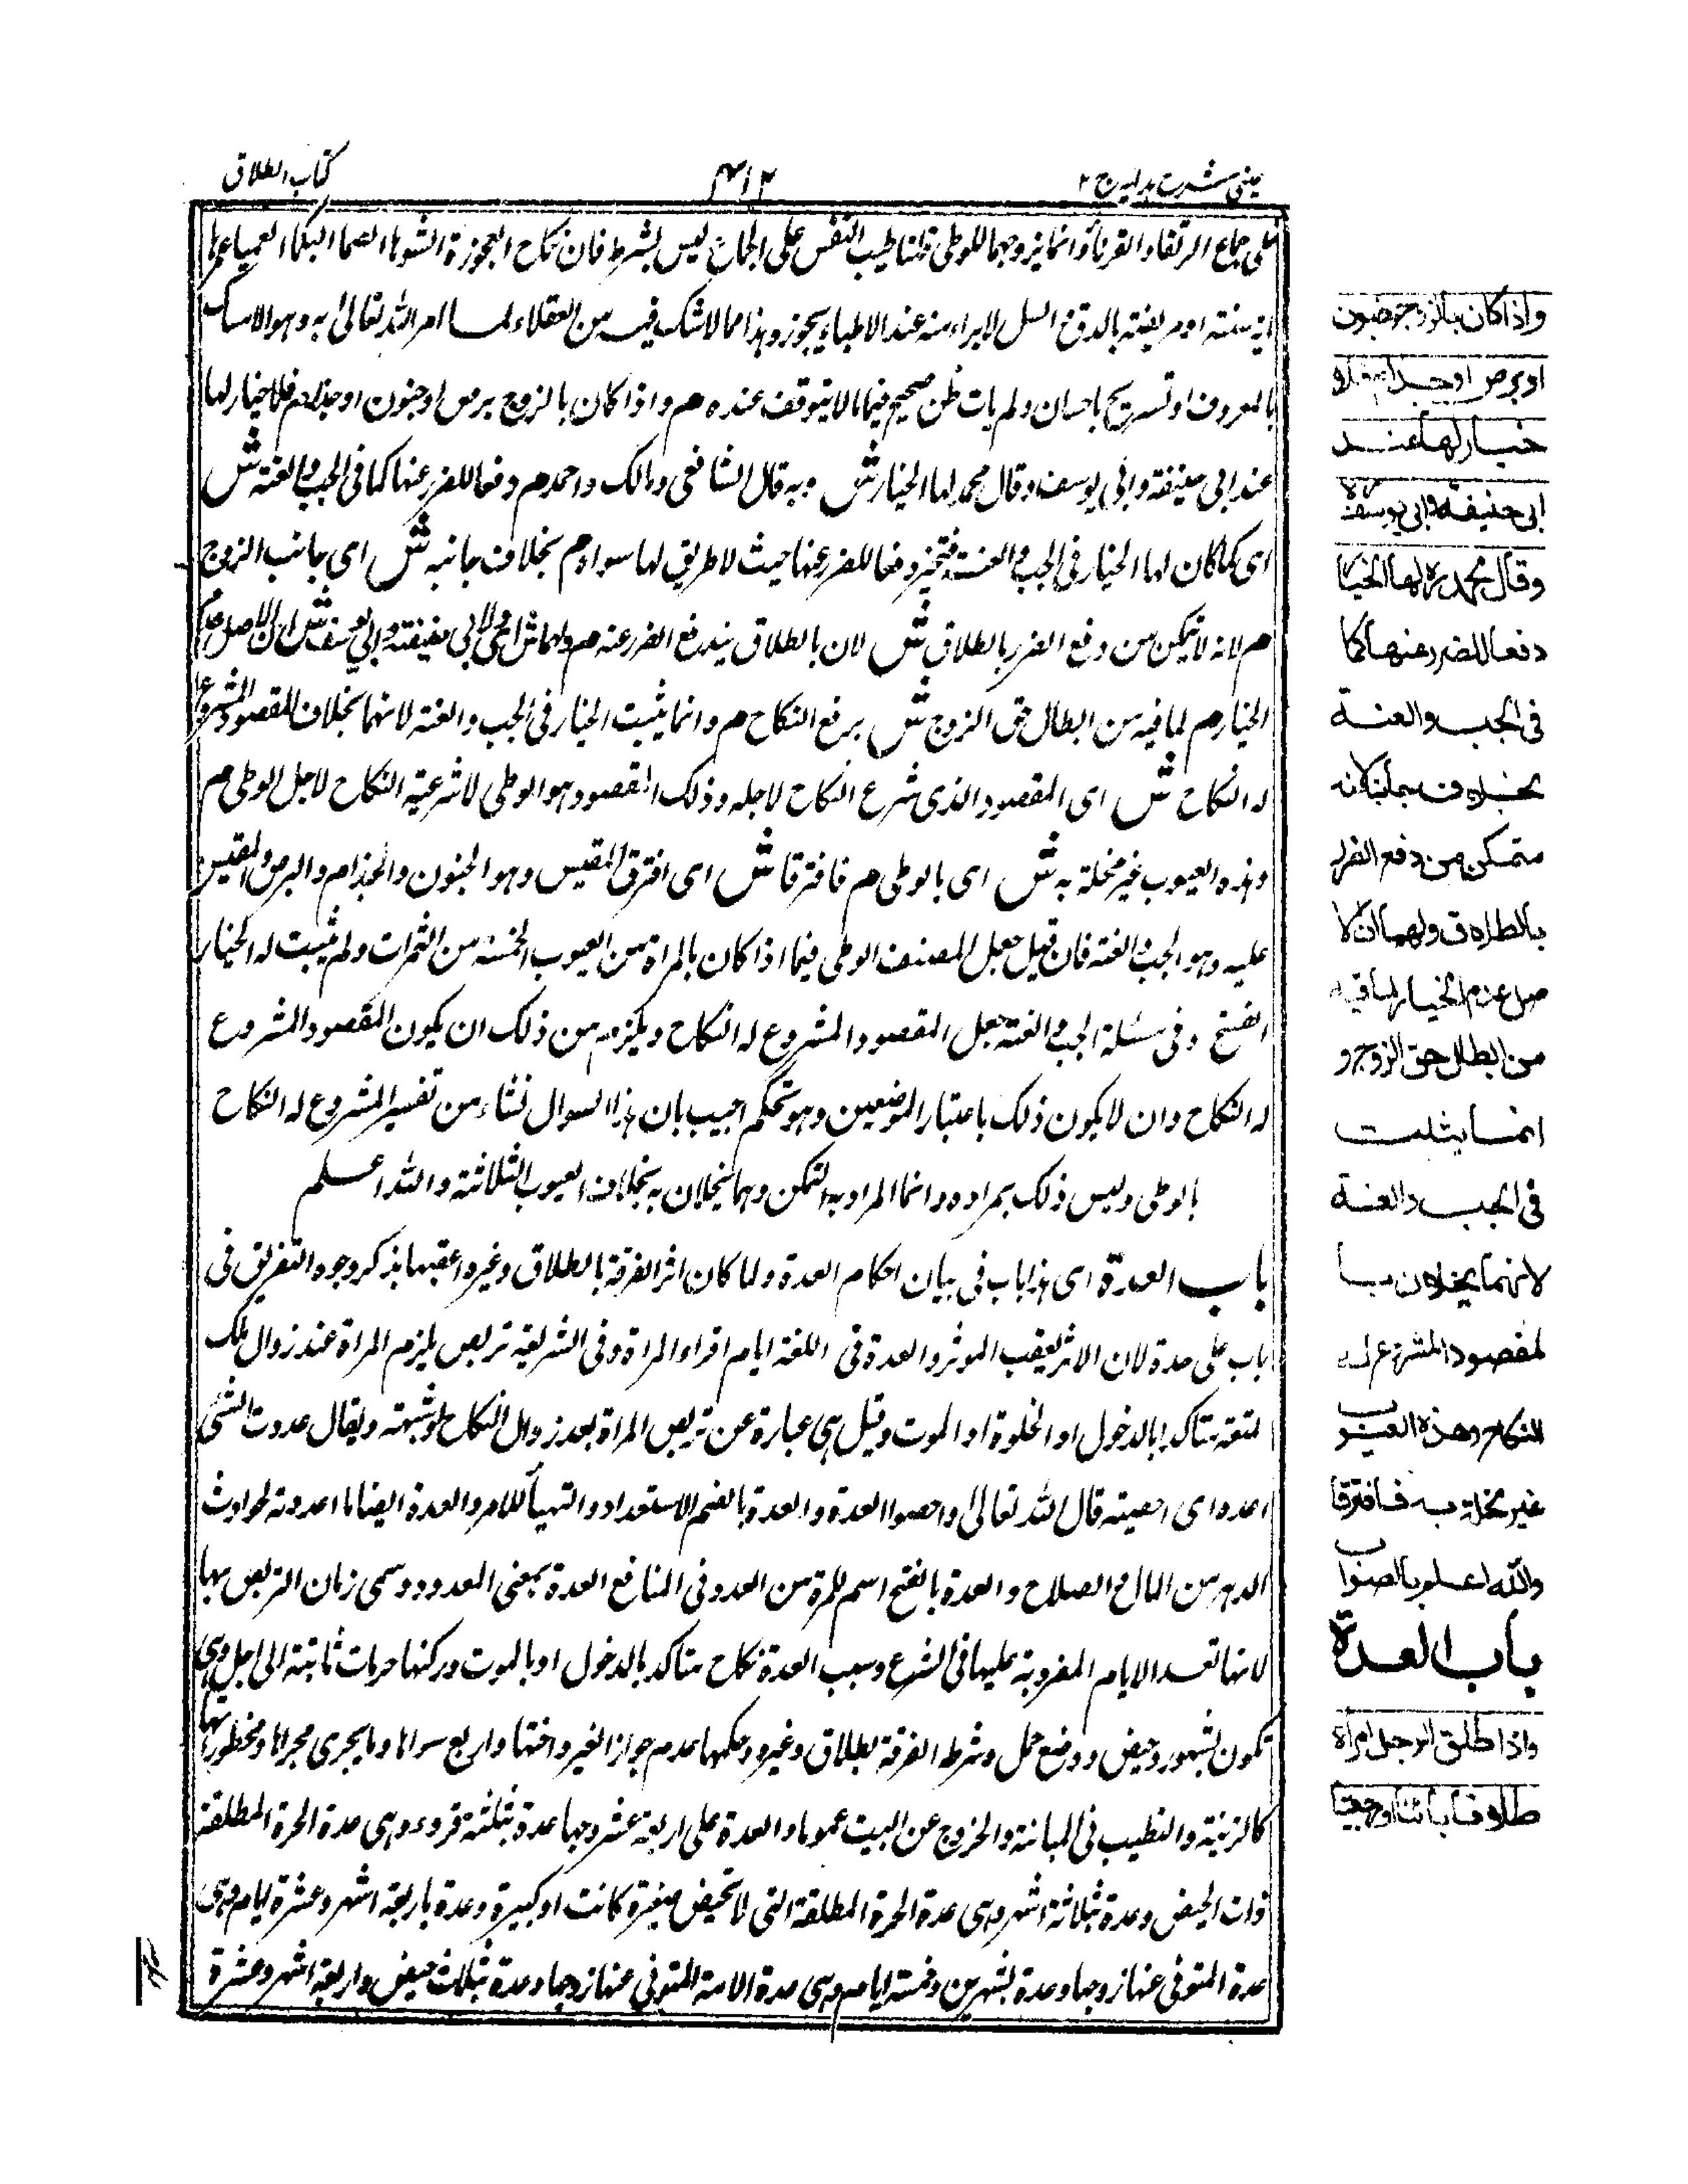 عینی شرح ہدایہ ج ۲
۴۱۲
کتاب الطلاق
علی جماع الرتقاء والقرناء وانما یزوجها للوطی قلنا طیب النفس علی الجماع لیس بشرط فان نکاح العجوزة الشوها الصما البکما العمیا
او مریضة بالدق والسل لابراء منه عند الاطباء یجوز وهذا مما لا شک فیه من العقلاء لما امر الله تعالی به وهو الامساک
بالمعروف او تسریح باحسان ولم یات ظن صحیح فیما لا یتوقف عنده م واذا کان بالزوج برص او جنون او جذام فلا خیار لها
عند ابی حنیفة وابی یوسف وقال محمد لها الخیار ش وبه قال الشافعی ومالک واحمد م دفعا للضرر عنها کما فی الجب والعنة ش
ای کما کان لها الخیار فی الجب والعنة فتخیر دفعا للضرر عنها حیث لا طریق لها سواه م بخلاف جانبه ش ای جانب الزوج
م لانه لا یمکن من دفع الضرر بالطلاق ش لان بالطلاق یندفع الضرر عنه م ولهما ش ای ولابی حنیفة وابی یوسف ش ان الاصل عدم
الخیار م لما فیه من ابطال حق الزوج ش برفع النکاح م وانما یثبت الخیار فی الجب والعنة لانهما یخلان المقصود المشروع
له النکاح ش ای المقصود الذی شرع النکاح لاجله وذلک المقصود هو الوطی لا شرعیة النکاح لاجل الوطی م
وهذه العیوب غیر مخلة به ش ای بالوطی م فافترقا ش ای افترق المقیس وهو الجنون والجذام والبرص والمقیس
علیه وهو الجب والعنة فان قیل جعل المصنف الوطی فیما اذا کان بالمراة من العیوب الخمسة من الثمرات ولم یثبت له الخیار
الفسخ وفی مسئلة الجب والعنة جعل المقصود المشروع له النکاح ویلزم من ذلک ان یکون المقصود المشروع
له النکاح وان لا یکون ذلک باعتبار الموضعین وهو تحکم اجیب بان هذا السوال نشاء من تفسیر المشروع له النکاح
بالوطی ولیس ذلک بمراده وانما المراد به التمکن وهما یخلان به بخلاف العیوب الثلاثة والله اعلم
باب العدة ای هذا باب فی بیان احکام العدة ولما کان اثر الفرقة بالطلاق وغیره اعقبها بذکر وجوه التفریق فی
باب علی حدة لان الاثر یعقب الموثر والعدة فی اللغة ایام اقراء المراة وفی الشریعة تربص یلزم المراة عند زوال ملک
المتعة متاکدا بالدخول او الخلوة او الموت وقیل هی عبارة عن تربص المراة بعد زوال النکاح او شبهته ویقال عددت الشئ
اعده ای احصیته قال الله تعالی واحصوا العدة والعدة بالضم الاستعداد والتهیأ للامر والعدة ایضا ما اعددته لحوادث
الدهر من المال والصلاح والعدة بالفتح اسم للمرة من العدد وفی المنافع العدة بمعنی المعدود وسمی زمان التربص بها
لانها تعد الایام المضروبة علیها فی الشرع وسبب العدة نکاح متاکد بالدخول او بالموت ورکنها حرمات ثابتة الی اجل وهی
تکون بشهور وحیض ووضع حمل وشرط الفرقة بطلاق وغیره وحکمها عدم جواز الغیر واختها واربع سواها وما یجری مجراها ومحظورها
کالزینة والتطیب فی المبانة والخروج عن البیت عموما والعدة علی اربعة عشر وجها عدة بثلثة قروء وهی عدة الحرة المطلقة
ذات الحیض وعدة بثلاثة اشهر وهی عدة الحرة المطلقة التی لا تحیض صغیرة کانت او کبیرة وعدة باربعة اشهر وعشرة ایام وهی
عدة المتوفی عنها زوجها وعدة بشهرین وخمسة ایام وهی عدة الامة المتوفی عنها زوجها وعدة بثلاث حیض واربعة اشهر وعشرة
واذا کان بالزوج جنون
او برص او جذام فلا
خیار لها عند
ابی حنیفة وابی یوسف
وقال محمد ره لها الخیا
دفعا للضرر عنها کما
فی الجب والعنة
بخلاف جانبه لانه
متمکن من دفع الضرر
بالطلاق ولهما ان الا
صل عدم الخیار لما فیه
من ابطال حق الزوج و
انما یثبت
فی الجب والعنة
لانهما یخلان با
لمقصود المشروع له
النکاح وهذه العیوب
غیر مخلة به فافترقا
والله اعلم بالصواب
باب العدة
واذا طلق الرجل امرأة
طلاقا بائنا او رجعیا